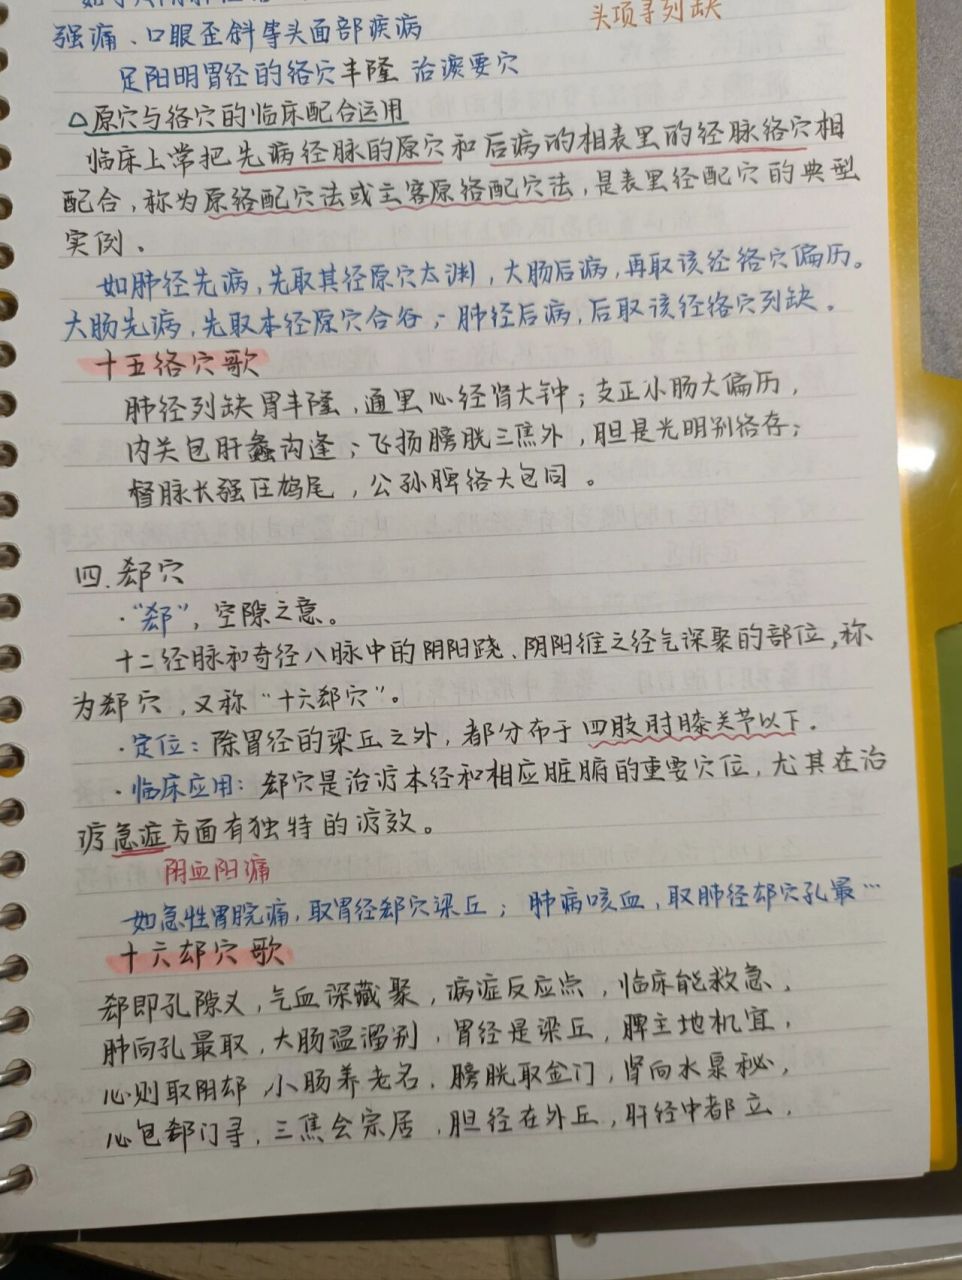 头项寻列缺
强痛、口眼歪斜等头面部疾病
足阳明胃经的络穴丰隆 治痰要穴
△原穴与络穴的临床配合运用
临床上常把先病经脉的原穴和后病的相表里的经脉络穴相
配合，称为原络配穴法或主客原络配穴法，是表里经配穴的典型
实例。
如肺经先病，先取其经原穴太渊，大肠后病，再取该经络穴偏历。
大肠先病，先取本经原穴合谷；肺经后病，后取该经络穴列缺。
十五络穴歌
肺经列缺胃丰隆，通里心经肾大钟；支正小肠大偏历，
内关包肝蠡沟逢；飞扬膀胱三焦外，胆是光明别络存；
督脉长强任鸠尾，公孙脾络大包同。
四.郄穴
·“郄”，空隙之意。
十二经脉和奇经八脉中的阴阳跷、阴阳维之经气深聚的部位，称
为郄穴，又称“十六郄穴”。
·定位：除胃经的梁丘之外，都分布于四肢肘膝关节以下。
·临床应用：郄穴是治疗本经和相应脏腑的重要穴位，尤其在治
疗急症方面有独特的疗效。
阴血阳痛
如急性胃脘痛，取胃经郄穴梁丘；肺病咳血，取肺经郄穴孔最…
十六郄穴歌
郄即孔隙义，气血深藏聚，病症反应点，临床能救急，
肺向孔最取，大肠温溜别，胃经是梁丘，脾主地机宜，
心则取阴郄，小肠养老名，膀胱取金门，肾向水泉秘，
心包郄门寻，三焦会宗居，胆经在外丘，肝经中都立，